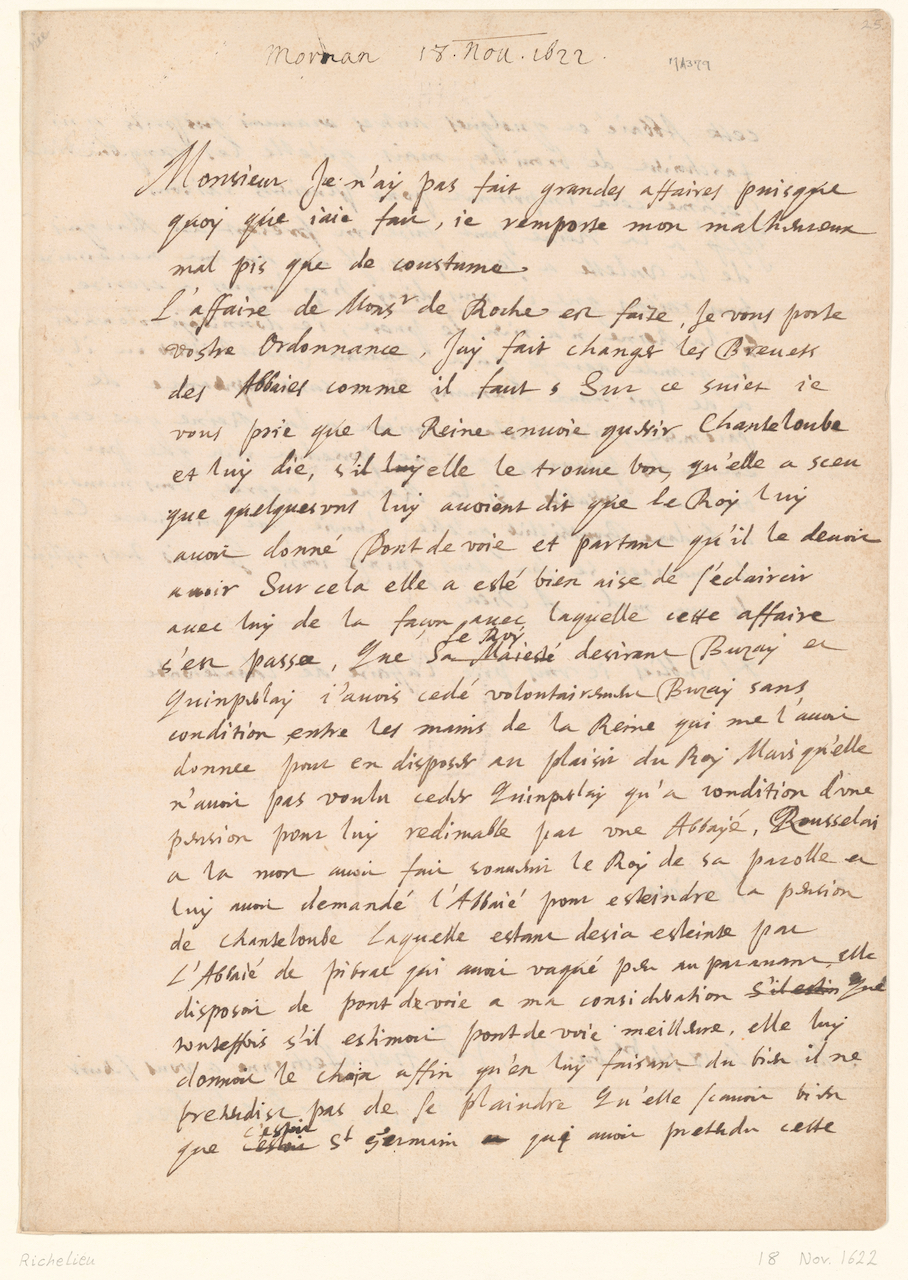 Mornan 18. Nou. 1622.
Monsieur Je n'ay pas fait grandes affaires puisque
quoy que iaie fait, ie remporte mon malheureux
mal pis que de coustume
L'affaire de Monsr de Roche est faite, Je vous porte
vostre Ordonnance, Jay fait changer les Breuets
des Abbaies comme il faut s Sur ce suiet ie
vous prie que la Reine enuoie querir Chanteloube
et luy die, s'il luy elle le trouue bon, qu'elle a sceu
que quelquesvns luy auoient dit que le Roy luy
auoit donné Pont de voie et partant qu'il le deuoit
auoir Sur cela elle a esté bien aise de s'éclaircir
auec luy de la façon auec laquelle cette affaire
s'est passee, Que Sa Maiesté le Roy desirant Buzay et
Quinperlay i'auois cedé volontairement Buzay sans
condition entre les mains de la Reine qui me l'auoit
donnee pour en disposer au plaisir du Roy Mais qu'elle
n'auoit pas voulu ceder Quinperlay qu'a condition d'vne
pension pour luy redimable par vne Abbayé, Rousselai
a la mort auoit fait souuenir le Roy de sa parolle et
luy auoit demandé l'Abbaié pour esteindre la pension
de chanteloube Laquelle estant desia esteinte par
L'Abbaié de pibrac qui auoit vaqué peu auparauant, elle
disposoit de pont de voie a ma consideration s'il estim Que
touteffois s'il estimoit pont de voie meilleure, elle luy
donnoit le choix affin qu'en luy faisant du bien il ne
pretendist pas de se plaindre Qu'elle scauoit bien
que c'estoit c'estoit St Germain qui auoit pretendu cette
Richelieu
18 Nov. 1622